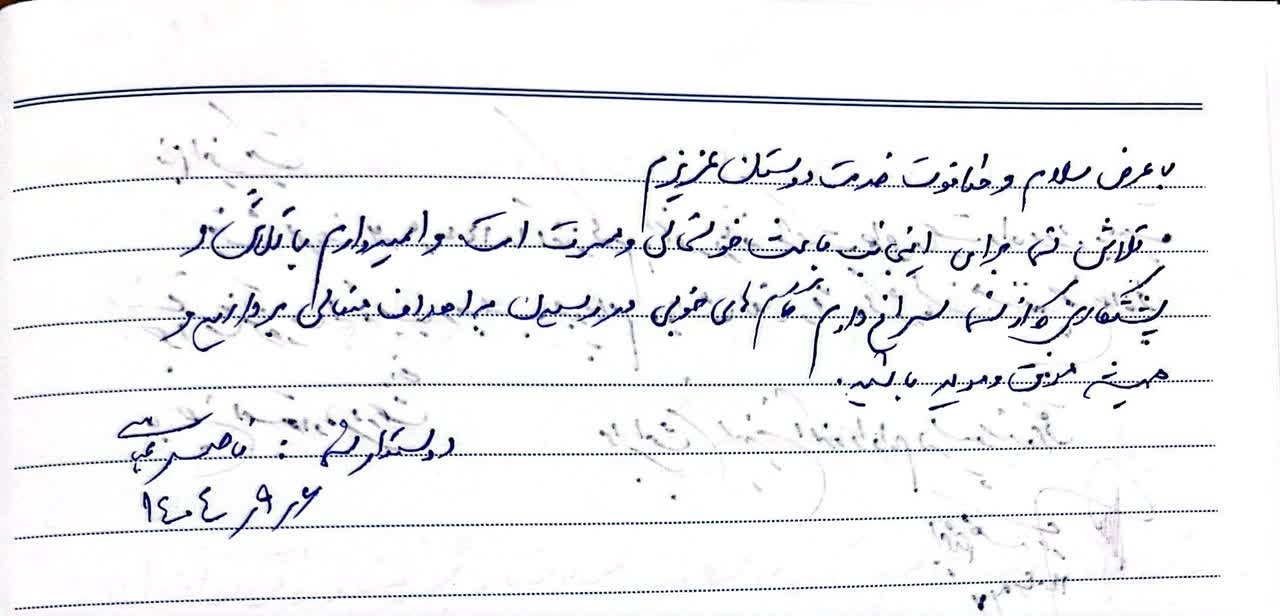 با عرض سلام و خداقوت خدمت دوستان عزیزم
تلاش شما برای اینجانب باعث خوشحالی و مسرت است و امیدوارم با تلاش و
پشتکاری که از شما سراغ دارم گام های خوبی در رسیدن به اهداف متعالی بردارید و
همیشه موفق و موید باشید.
دوستدار شما : عباسی
۱۴۰۴/۹/۶